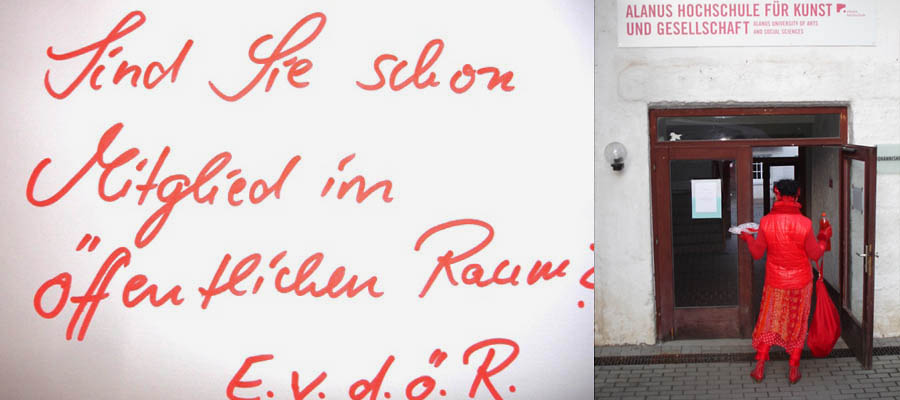 Sind Sie schon
Mitglied im
öffentlichen Raum?
E.v.d.ö.R.
ALANUS HOCHSCHULE FÜR KUNST
UND GESELLSCHAFT
ALANUS UNIVERSITY OF ARTS
AND SOCIAL SCIENCES